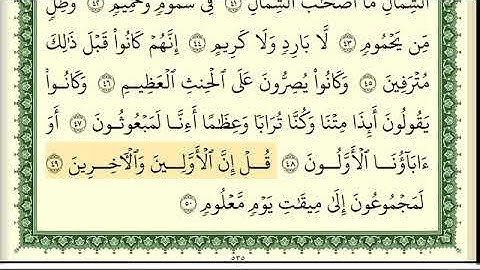 الشِّمَالِ مَا أَصْحَٰبُ الشِّمَالِ ٤١ فِي سَمُومٍ وَحَمِيمٍ ٤٢ وَظِلٍّ
مِّن يَحْمُومٍ ٤٣ لَّا بَارِدٍ وَلَا كَرِيمٍ ٤٤ إِنَّهُمْ كَانُوا۟ قَبْلَ ذَٰلِكَ
مُتْرَفِينَ ٤٥ وَكَانُوا۟ يُصِرُّونَ عَلَى ٱلْحِنثِ ٱلْعَظِيمِ ٤٦ وَكَانُوا۟
يَقُولُونَ أَئِذَا مِتْنَا وَكُنَّا تُرَابًا وَعِظَٰمًا أَءِنَّا لَمَبْعُوثُونَ ٤٧ أَوَ
ءَابَآؤُنَا ٱلْأَوَّلُونَ ٤٨ قُلْ إِنَّ ٱلْأَوَّلِينَ وَٱلْءَاخِرِينَ ٤٩
لَمَجْمُوعُونَ إِلَىٰ مِيقَٰتِ يَوْمٍ مَّعْلُومٍ ٥٠
٥٣٥